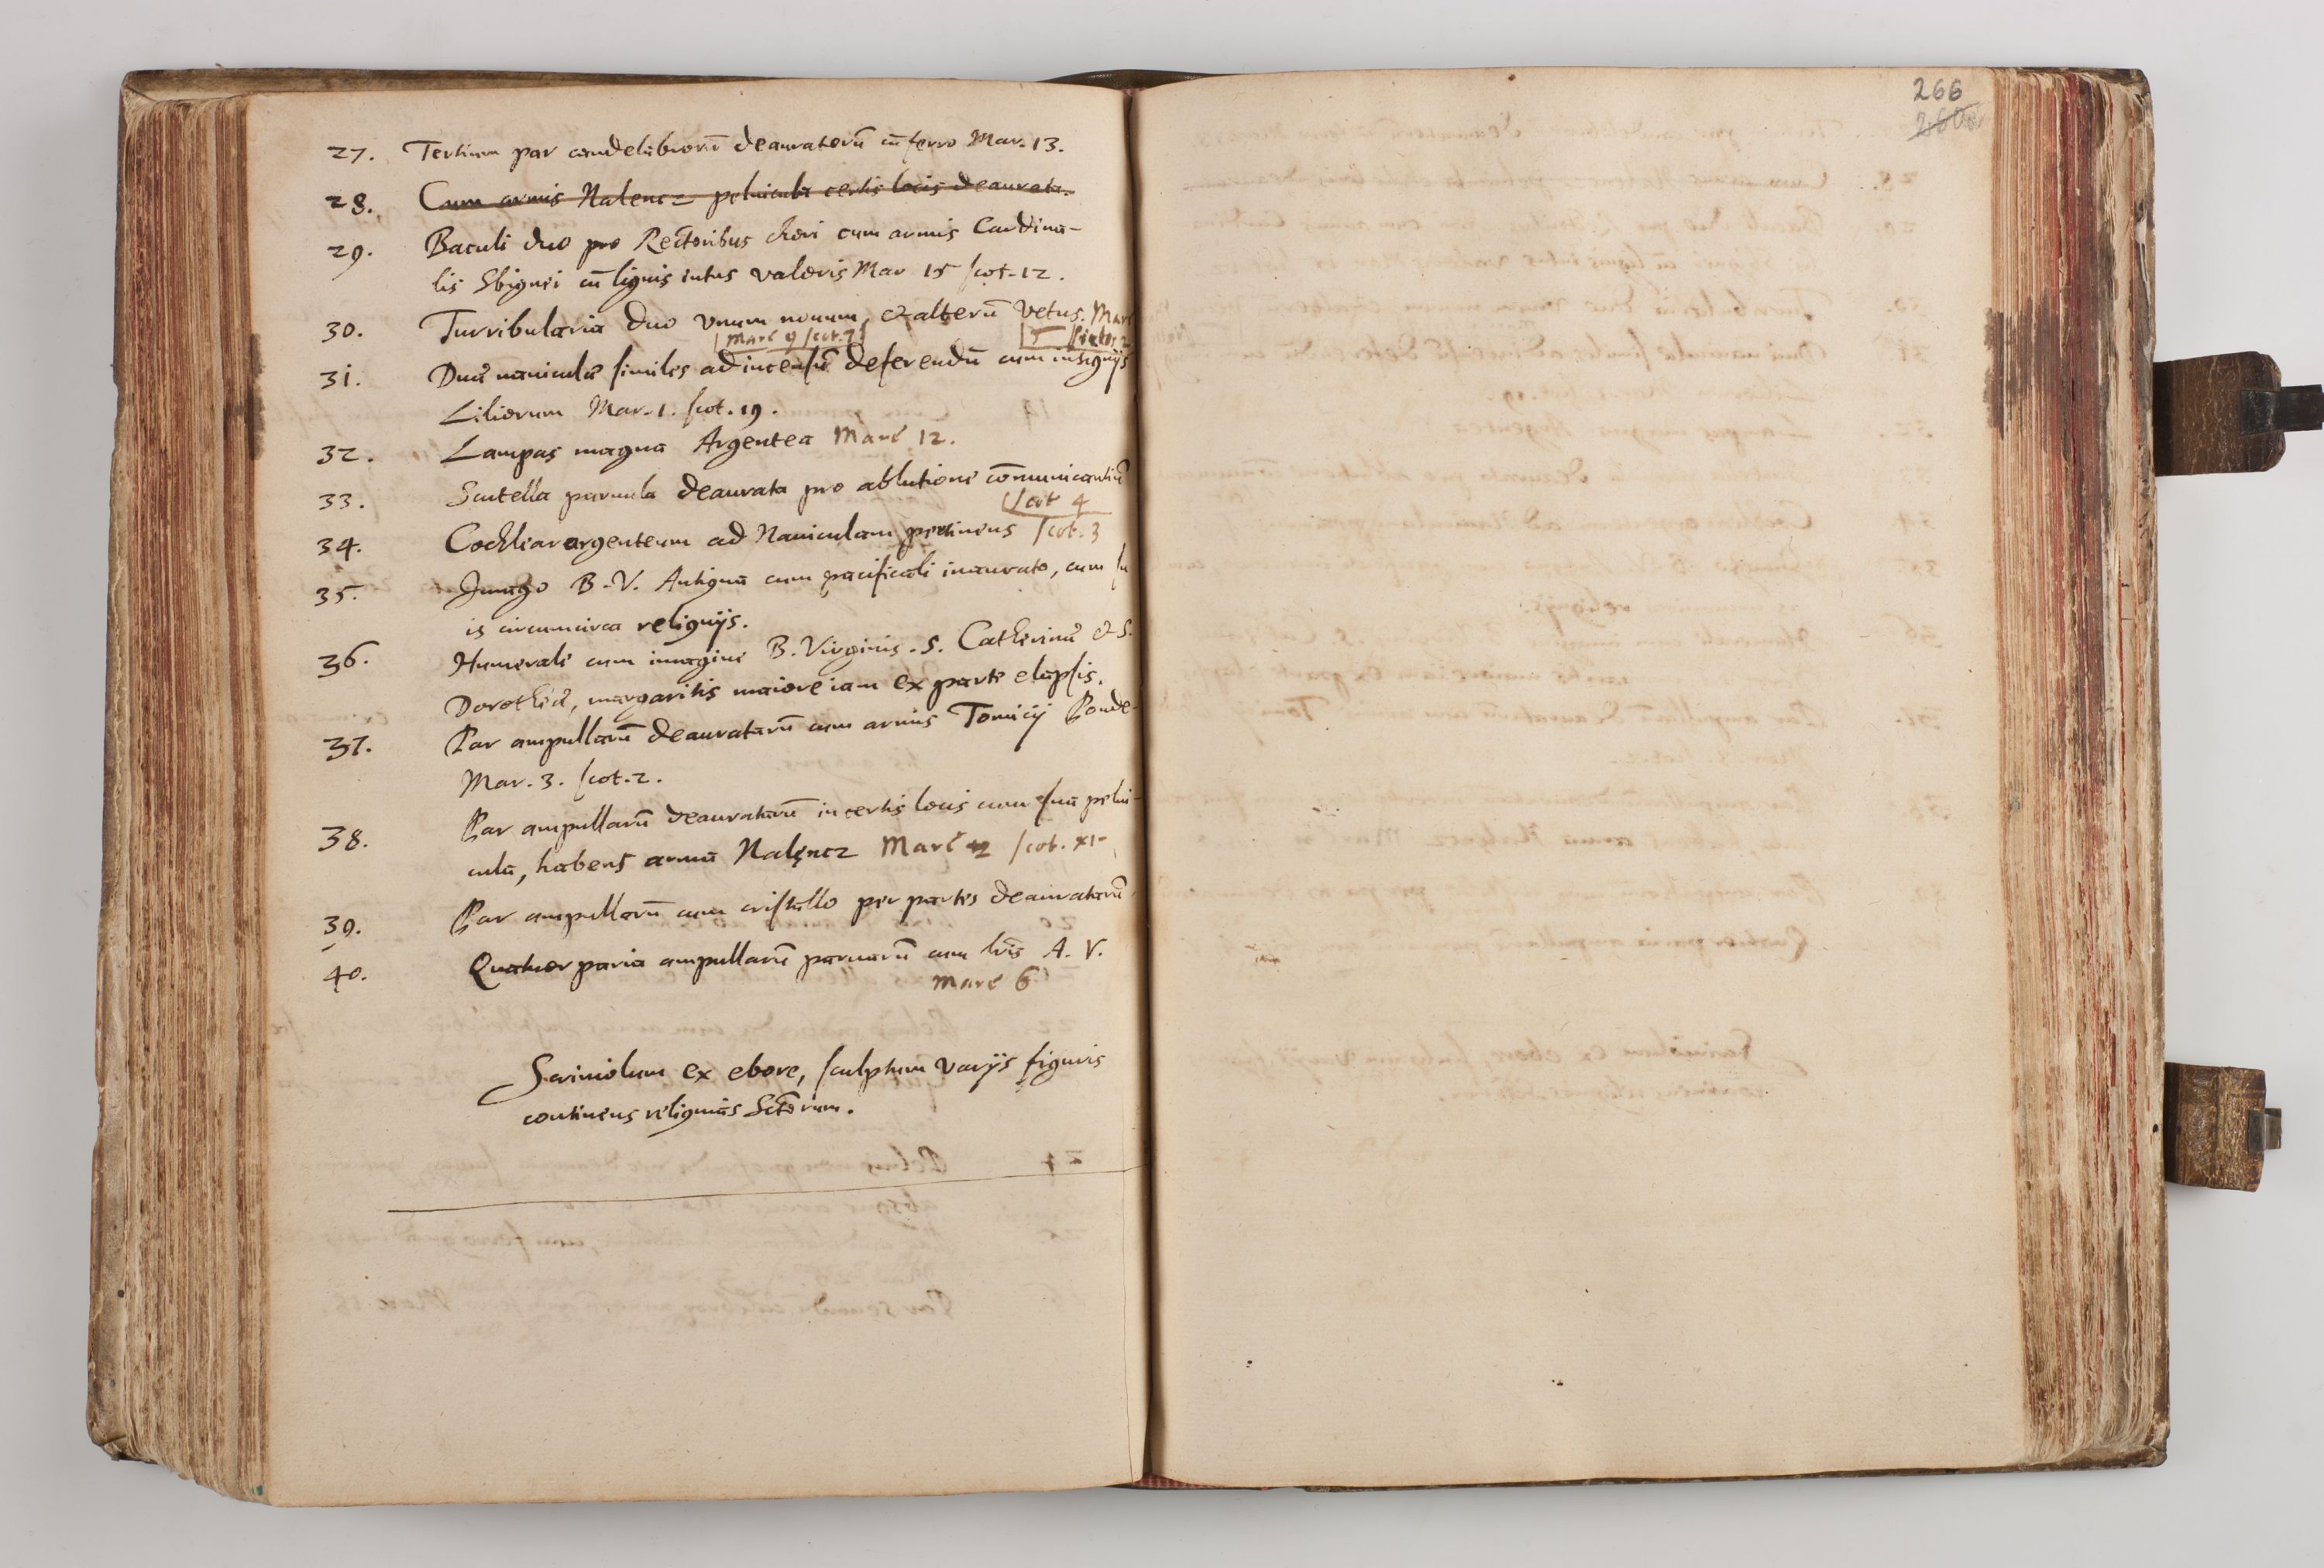 27. Tertium par candelabrorū deauratorū cū ferro Mar. 13.
28. Cum armis Nalencz peluicula certis locis deaurata.
29. Baculi duo pro Rectoribus chori cum armis Cardina-
lis Sbignei cū lignis intus valoris Mar 15 scot. 12.
30. Turribularia duo vnum nouum, et alterū vetus. Marc
Marc 9 scot. 7
15
31. Duæ nauiculæ similes ad incensū deferendū cum insignijs
Liliorum Mar. 1. scot. 19.
32. Lampas magna Argentea Marc 12.
33. Scutella paruula deaurata pro ablutione cōmunicantiū
scot 4
34. Cochlear argenteum ad Nauiculam pertinens scot. 3
35. Imago B. V. Antiqua cum pacificali inaurato, cum su
is circumcirca reliquijs.
36. Humerale cum imagine B. Virginis. S. Catherinæ et S.
Dorotheæ, margaritis maiore iam ex parte elapsis.
37. Par ampullarū deauratarū cum armis Tomicij Ponde-
Mar. 3. scot. 2.
38. Par ampullarū deauratarū in certis locis cum sua pelui-
cula, habens arma Nalęncz Marc scot. xi
39. Par ampullarū cum cristallo per partes deauratarū.
40. Quatuor paria ampullarū paruarū cum lr̄is A. V.
Marc 6
Scriniolum ex ebore, sculptum varijs figuris
continens reliquias Sctōrum.
266
260